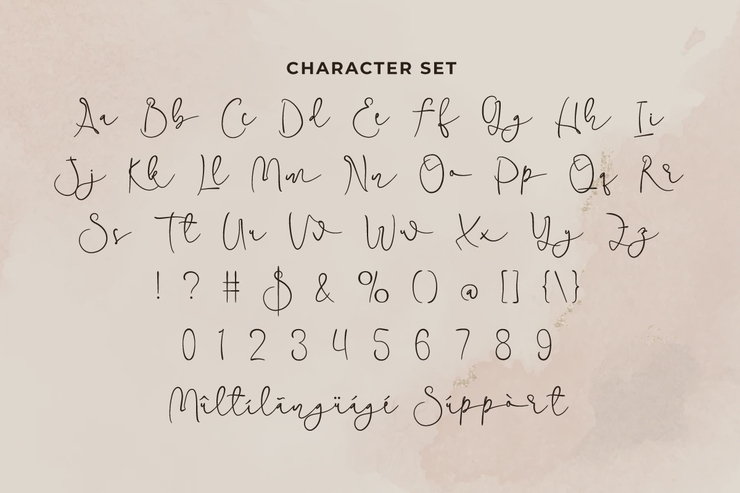 CHARACTER SET
Aa Bb Cc Dd Ee Ff Gg Hh Ii
Jj Kk Ll Mm Nn Oo Pp Qq Rr
Ss Tt Uu Vv Ww Xx Yy Zz
! ? # $ & % () @ [] {\}
0 1 2 3 4 5 6 7 8 9
Mûltílāngüágé Súppòrt